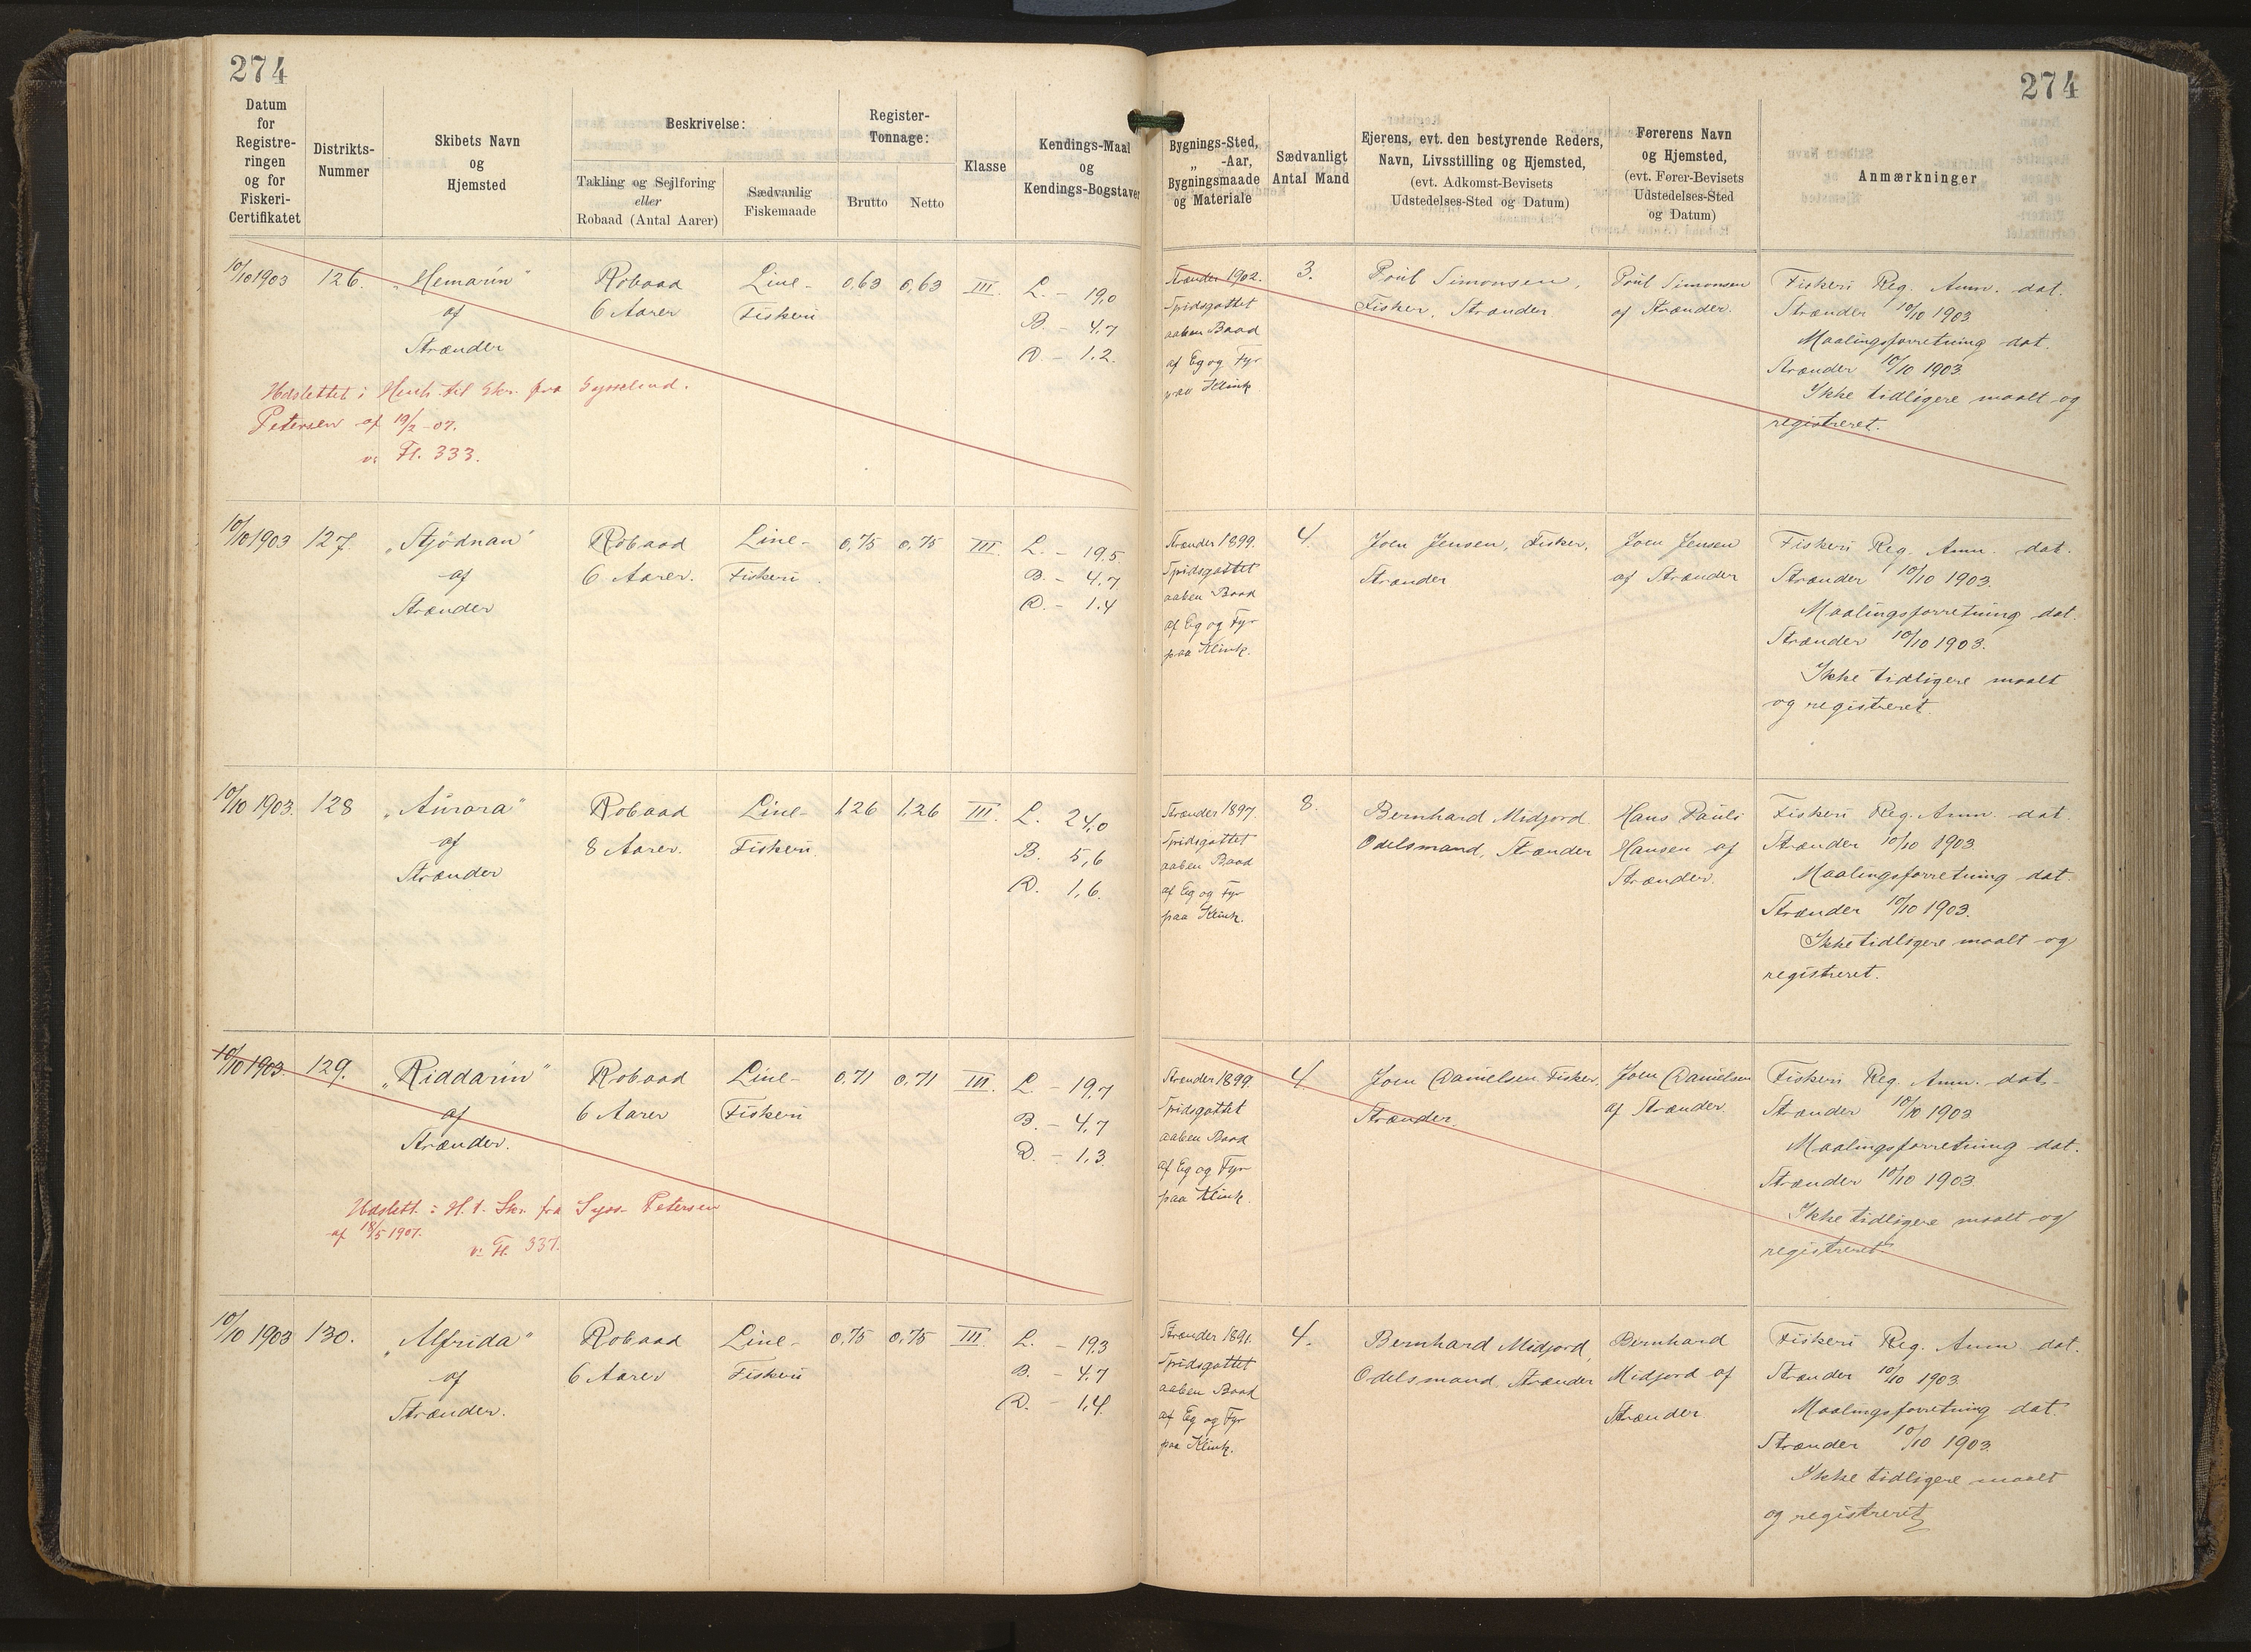 274
274
Datum for Registreringen og for Fiskeri-Certifikatet
Distrikts-Nummer
Skibets Navn og Hjemsted
Beskrivelse:
Takling og Sejlføring eller Robaad (Antal Aarer)
Sædvanlig Fiskemaade
Register-Tonnage:
Brutto
Netto
Klasse
Kendings-Maal og Kendings-Bogstaver
Bygnings-Sted, „ -Aar, Bygningsmaade og Materiale
Sædvanligt Antal Mand
Ejerens, evt. den bestyrende Reders, Navn, Livsstilling og Hjemsted, (evt. Adkomst-Bevisets Udstedelses-Sted og Datum)
Førerens Navn og Hjemsted, (evt. Fører-Bevisets Udstedelses-Sted og Datum)
Anmærkninger
10/10 1903
126.
„Hemarin"
af
Strænder
Robaad
6 Aarer
Line-
Fiskeri
0,63
0,63
III.
L. – 19,0
B. – 4,7
D. – 1,2.
Strænder 1902.
Spidsgattet
aaben Baad
af Eg og Fyr
paa Klink
3.
Poul Simonsen,
Fisker, Strænder
Poul Simonsen
af Strænder.
Fiskeri Reg. Anm. dat.
Strænder 10/10 1903
Maalingsforretning dat.
Strænder 10/10 1903
Ikke tidligere maalt og
registreret.
Udslettet i Henh. til Skr. fra Sysselmd.
Petersen af 19/2 -07.
Fl. 333.
10/10 1903
127.
„Stjødnan"
af
Strænder
Robaad
6 Aarer.
Line-
Fiskeri
0,75
0,75
III.
L. – 19,5
B. – 4,7
D. – 1,4
Strænder 1899.
Spidsgattet
aaben Baad
af Eg og Fyr
paa Klink.
4.
Joen Jensen, Fisker,
Strænder
Joen Jensen
af Strænder
Fiskeri Reg. Anm. dat.
Strænder 10/10 1903.
Maalingsforretning dat.
Strænder 10/10 1903.
Ikke tidligere maalt
og registreret.
10/10 1903.
128
„Aurora"
af
Strænder
Robaad
8 Aarer.
Line-
Fiskeri
1,26
1,26
III.
L. 24,0
B. 5,6
D. 1,6.
Strænder 1897.
Spidsgattet
aaben Baad
af Eg og Fyr
paa Klink.
8.
Bernhard Midjord
Odelsmand, Strænder
Hans Pauli
Hansen af
Strænder.
Fiskeri Reg. Anm. dat.
Strænder 10/10 1903
Maalingsforretning dat.
Strænder 10/10 1903.
Ikke tidligere maalt og
registreret.
10/10 1903.
129.
„Riddarin"
af
Strænder.
Robaad
6 Aarer
Line-
Fiskeri
0,71
0,71
III.
L. – 19,7
B. – 4,7
D. – 1,3.
Strænder 1899.
Spidsgattet
aaben Baad
af Eg og Fyr
paa Klink.
4
Joen Danielsen, Fisker,
Strænder.
Joen Danielsen
af Strænder.
Fiskeri Reg. Anm. dat.
Strænder 10/10 1903
Maalingsforretning dat.
Strænder 10/10 1903
Ikke tidligere maalt og
registreret
Udslett. i H. t. Skr. fra Syss. Petersen
af 18/5 1907.
Fl. 337.
10/10 1903
130.
„Alfrida"
af
Strænder.
Robaad
6 Aarer
Line-
Fiskeri
0,75
0,75
III.
L. – 19,3
B. – 4,7
D. – 1,4.
Strænder 1891.
Spidsgattet
aaben Baad
af Eg og Fyr
paa Klink.
4.
Bernhard Midjord,
Odelsmand, Strænder
Bernhard
Midjord af
Strænder
Fiskeri Reg. Anm dat.
Strænder 10/10 1903.
Maalingsforretning dat.
Strænder 10/10 1903.
Ikke tidligere maalt
og registreret